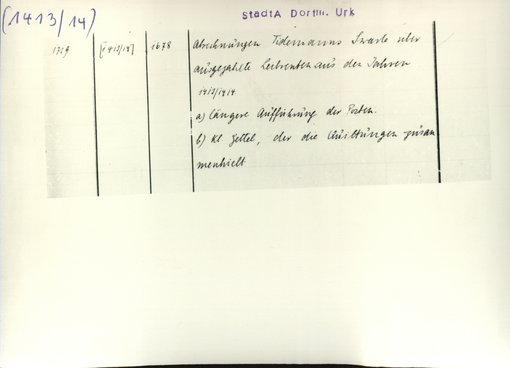 (1413/14)
StadtA Dortm. Urk
1729 [1413/14] 1678 Abrechnungen Tidemanns Swarte über
ausgezahlte Leibrenten aus den Jahren
1413/1414
a) längere Aufführung der Posten.
b) kl. Zettel, der die Quittungen zusam
menhielt